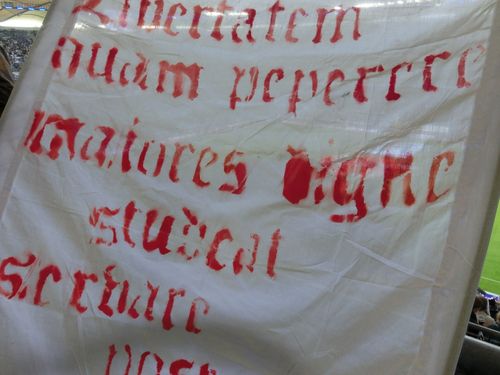 Libertatem
quam peperere
maiores digne
studeat
servare
post